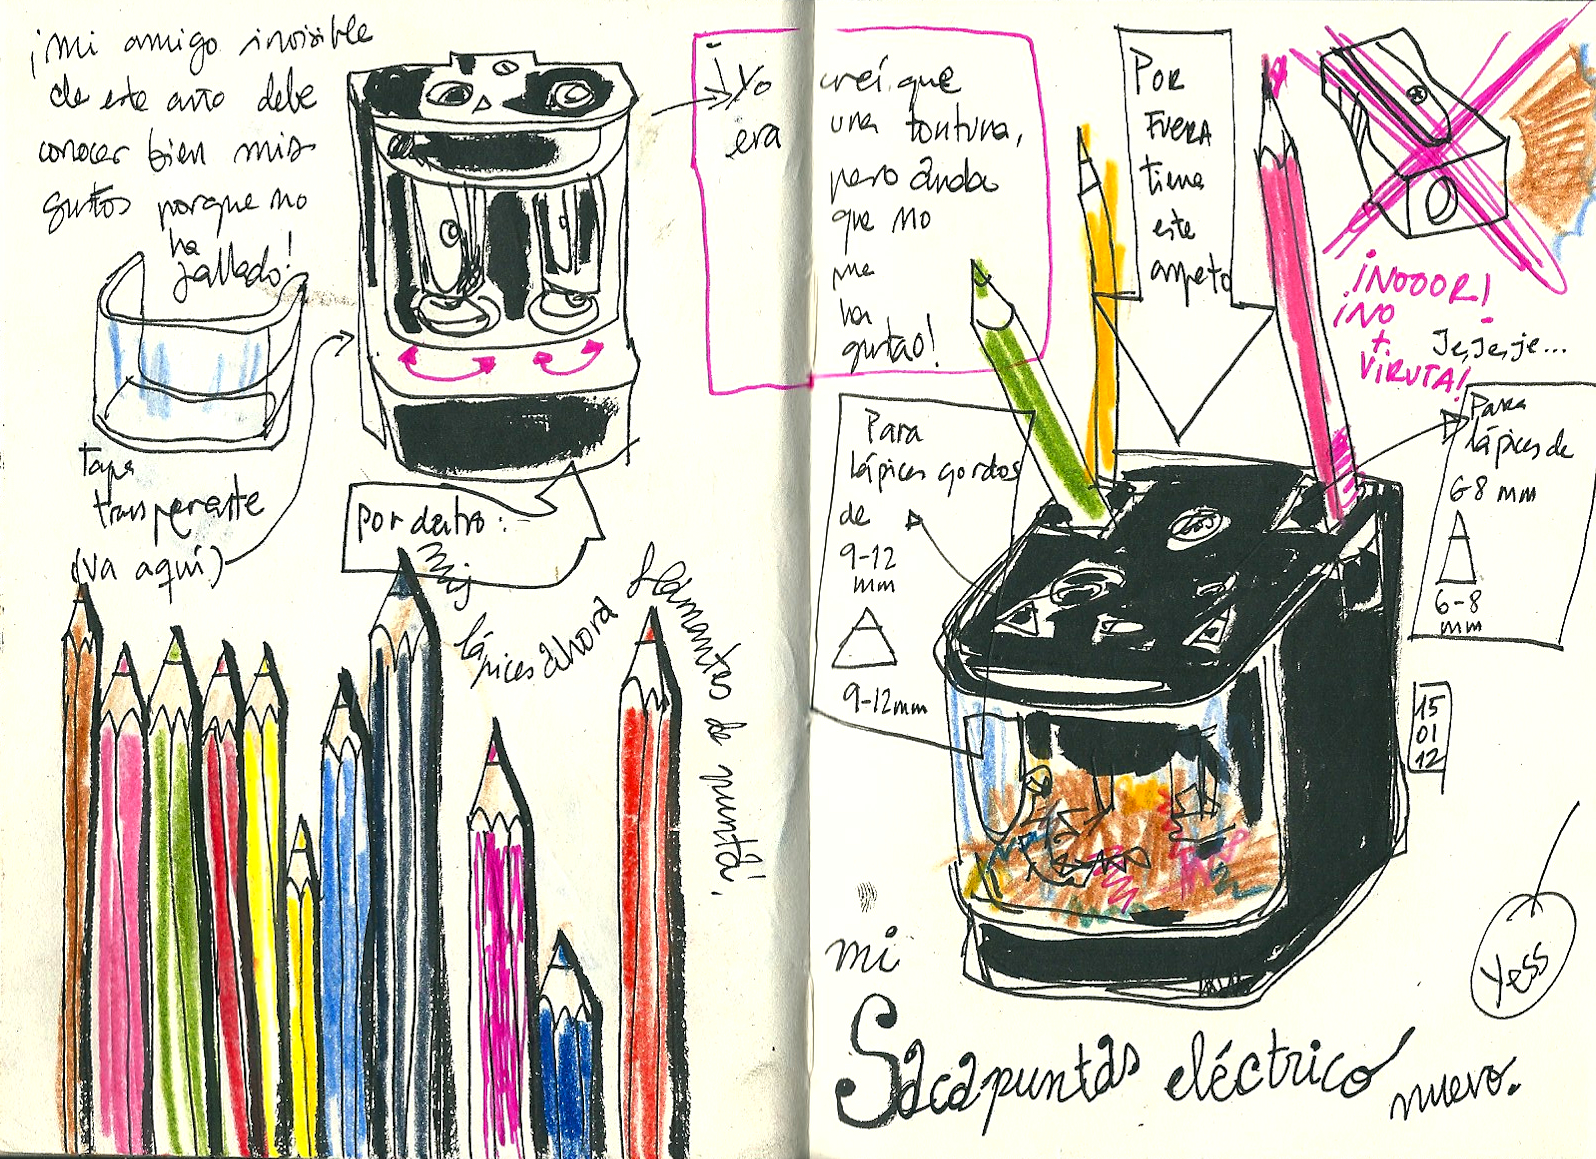 ¡mi amigo invisible
de este año debe
conocer bien mis
gustos porque no
ha
fallado!
Tapa
transparente
(va aquí)
por dentro:
mis
lápices ahora flamantes de punta.
¡Yo creí que
era una tontuna,
pero ánda
que no
me
ha
gustao!
POR
FUERA
tiene
este
aspeto
¡NOOOR!
¡NO
+
VIRUTA!
Je, Je, je...
Para
lápices gordos
de
9-12
mm
9-12mm
Para
lápices de
6-8 mm
6-8
mm
15
01
12
Yess
mi
Sacapuntas eléctrico nuevo.